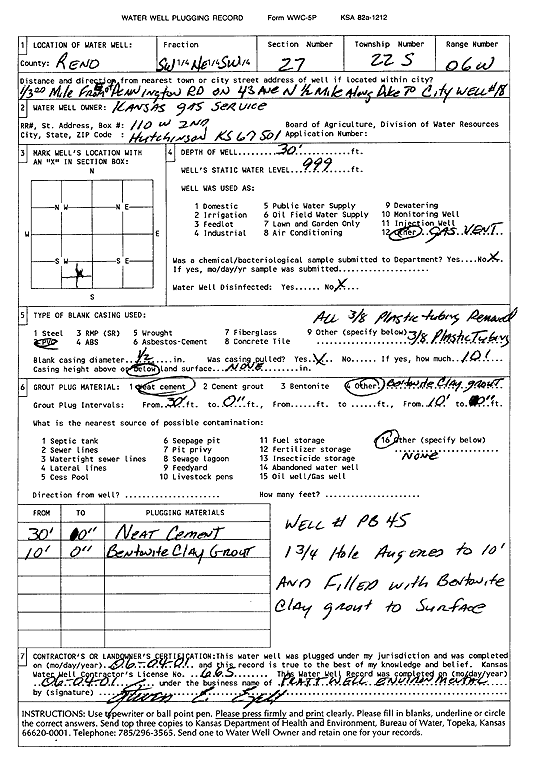 WATER WELL PLUGGING RECORD Form WWC-5P KSA 82a-1212
1 LOCATION OF WATER WELL: Fraction Section Number Township Number Range Number
County: RENO SW 1/4 NE 1/4 SW 1/4 27 22 S 06 W
Distance and direction from nearest town or city street address of well if located within city?
Mile From Pennington RD on 43 AVE N 1/2 Mile Along Dike To City Well #18
2 WATER WELL OWNER: KANSAS GAS SERVICE
RR#, St. Address, Box #: 110 W 2ND Board of Agriculture, Division of Water Resources
City, State, ZIP Code : Hutchinson KS 67501 Application Number:
3 MARK WELL'S LOCATION WITH AN "X" IN SECTION BOX:
N
N W N E
W E
S W S E
X
S
4 DEPTH OF WELL.....30'.....ft.
WELL'S STATIC WATER LEVEL...999...ft.
WELL WAS USED AS:
1 Domestic 5 Public Water Supply 9 Dewatering
2 Irrigation 6 Oil Field Water Supply 10 Monitoring Well
3 Feedlot 7 Lawn and Garden Only 11 Injection Well
4 Industrial 8 Air Conditioning 12 Other.. GAS VENT
Was a chemical/bacteriological sample submitted to Department? Yes....No X
If yes, mo/day/yr sample was submitted...................
Water Well Disinfected: Yes..... No X
5 TYPE OF BLANK CASING USED: ALL 3/8 Plastic tubing Removed
1 Steel 3 RMP (SR) 5 Wrought 7 Fiberglass 9 Other (specify below) 3/8 Plastic Tubing
2 PVC 4 ABS 6 Asbestos-Cement 8 Concrete Tile
Blank casing diameter..1/2..in. Was casing pulled? Yes.X.. No...... If yes, how much..10'..
Casing height above or below land surface...NONE.........in.
6 GROUT PLUG MATERIAL: 1 Neat cement 2 Cement grout 3 Bentonite 4 other Bentonite Clay grout
Grout Plug Intervals: From..30'.ft. to..0"..ft., From......ft. to ......ft., From 10' to 0" ft.
What is the nearest source of possible contamination:
1 Septic tank 6 Seepage pit 11 Fuel storage 16 Other (specify below)
2 Sewer lines 7 Pit privy 12 Fertilizer storage NONE
3 Watertight sewer lines 8 Sewage lagoon 13 Insecticide storage
4 Lateral lines 9 Feedyard 14 Abandoned water well
5 Cess Pool 10 Livestock pens 15 Oil well/Gas well
Direction from well? .................. How many feet? ......................
FROM TO PLUGGING MATERIALS
30' 0" NEAT CEMENT
10' 0" Bentonite Clay Grout
WELL # PB 45
1 3/4 Hole Augered to 10'
AND Filled with Bentonite
Clay grout to Surface
7 CONTRACTOR'S OR LANDOWNER'S CERTIFICATION:This water well was plugged under my jurisdiction and was completed
on (mo/day/year)..06-04-01... and this record is true to the best of my knowledge and belief. Kansas
Water Well Contractor's License No. ..665...... This Water Well Record was completed on (mo/day/year)
..06-04-01... under the business name of PRATT WELL ENVIRONMENTAL
by (signature)
INSTRUCTIONS: Use typewriter or ball point pen. Please press firmly and print clearly. Please fill in blanks, underline or circle
the correct answers. Send top three copies to Kansas Department of Health and Environment, Bureau of Water, Topeka, Kansas
66620-0001. Telephone: 785/296-3565. Send one to Water Well Owner and retain one for your records.